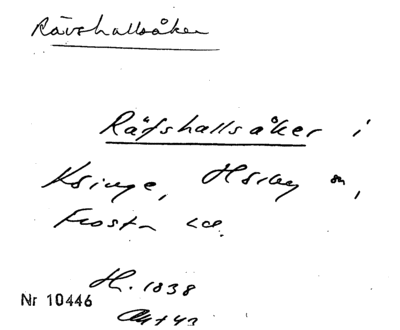 Rävshallsåker
Räfshallsåker i
Hörby sn,
Frosta hd.
H. 1838
Nr 10446